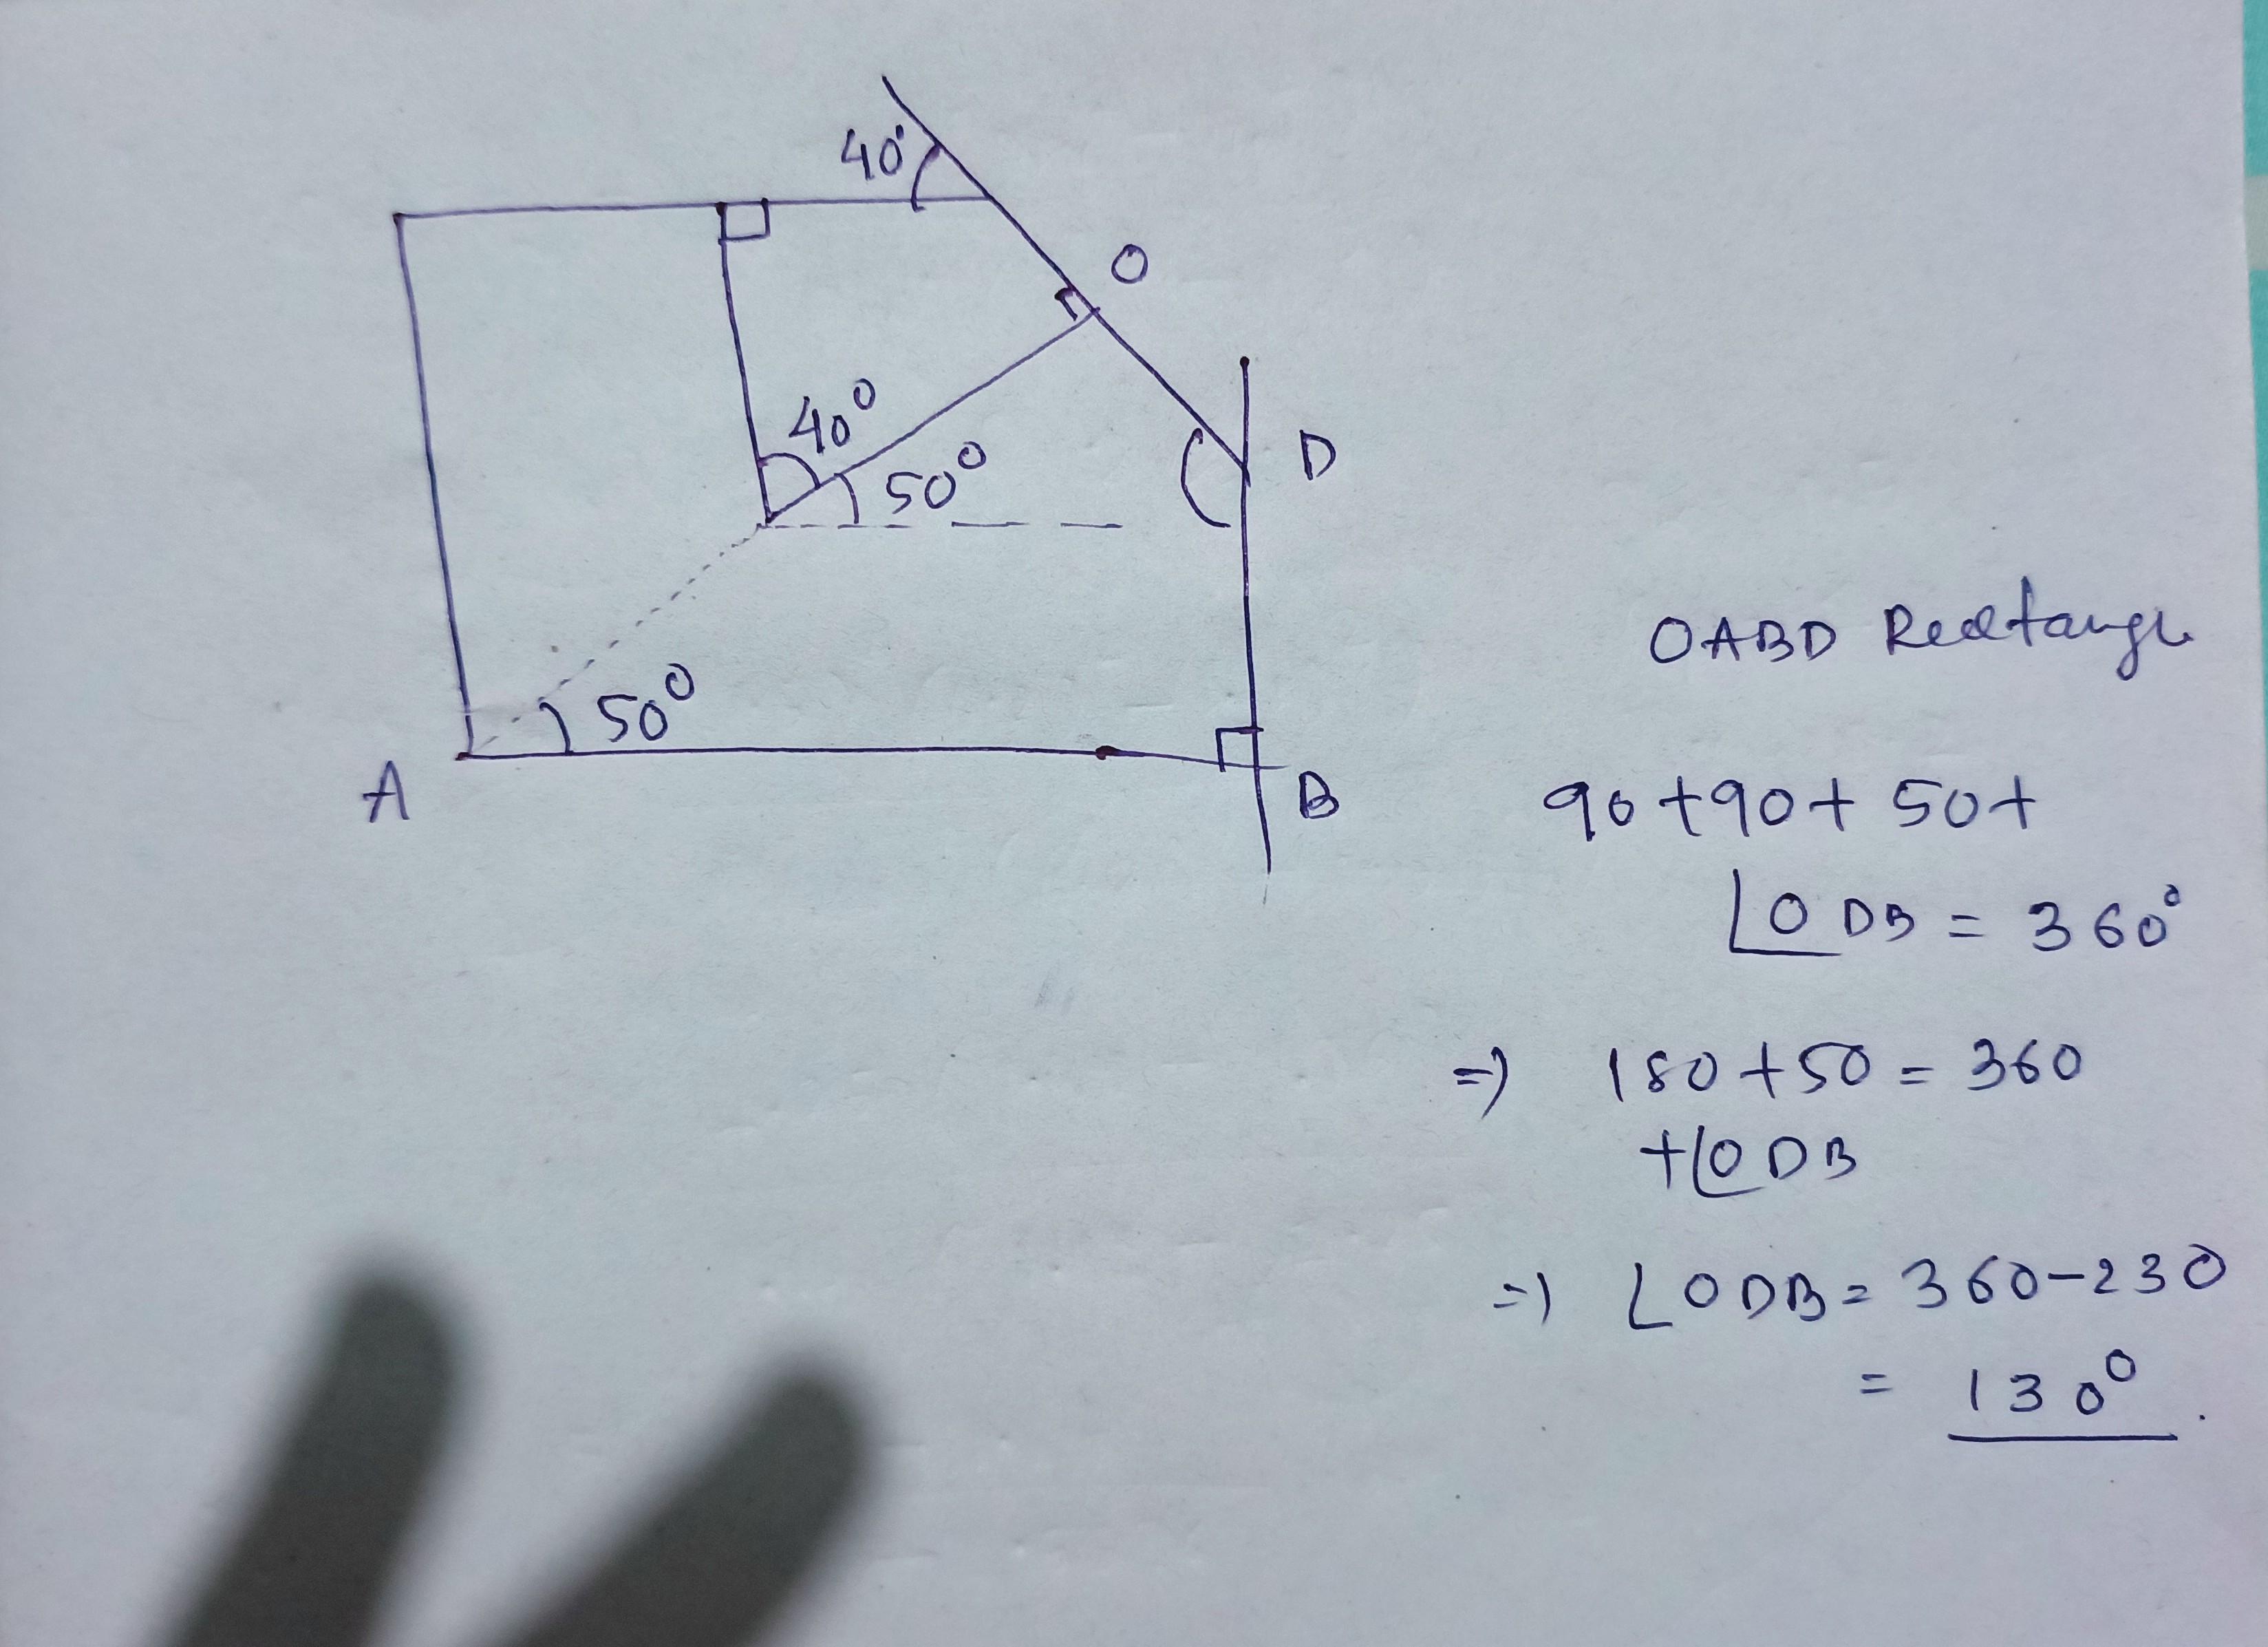 40°
O
40°
50°
D
50°
A
B
OABD Rectangle
90+90+50+
∠ODB = 360°
=) 180+50 = 360
+∠ODB
=) ∠ODB = 360-230
= 130°.